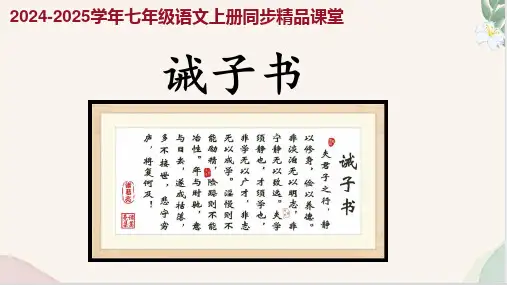 2024-2025学年七年级语文上册同步精品课堂
诫子书
诫子书
夫君子之行，静
以修身，俭以养德。
非淡泊无以明志，非
宁静无以致远。夫学
须静也，才须学也，
非学无以广才，非志
无以成学。淫慢则不
能励精，险躁则不能
冶性。年与时驰，意
与日去，遂成枯落，
多不接世，悲守穷
庐，将复何及！